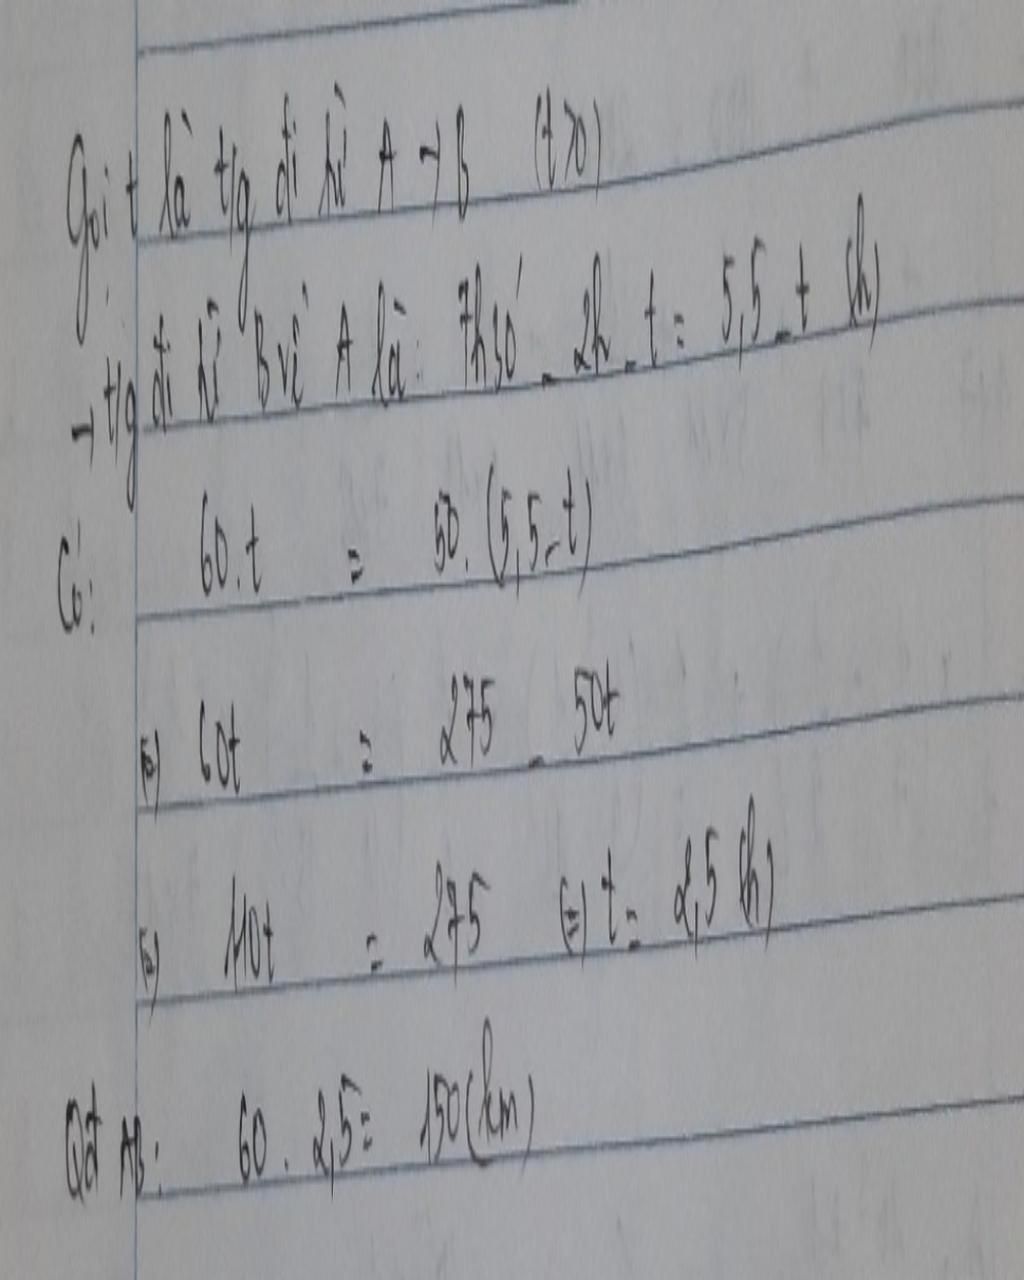 Gọi t là t/g đi từ A → B (t>0)
→ t/g đi từ B về A là: 7h30' - 2h - t = 5,5 - t (h)
Có: 60.t = 50.(5,5-t)
(=) 60t = 275 - 50t
(=) 110t = 275 (=) t = 2,5 (h)
Qđ AB: 60 . 2,5 = 150(km)